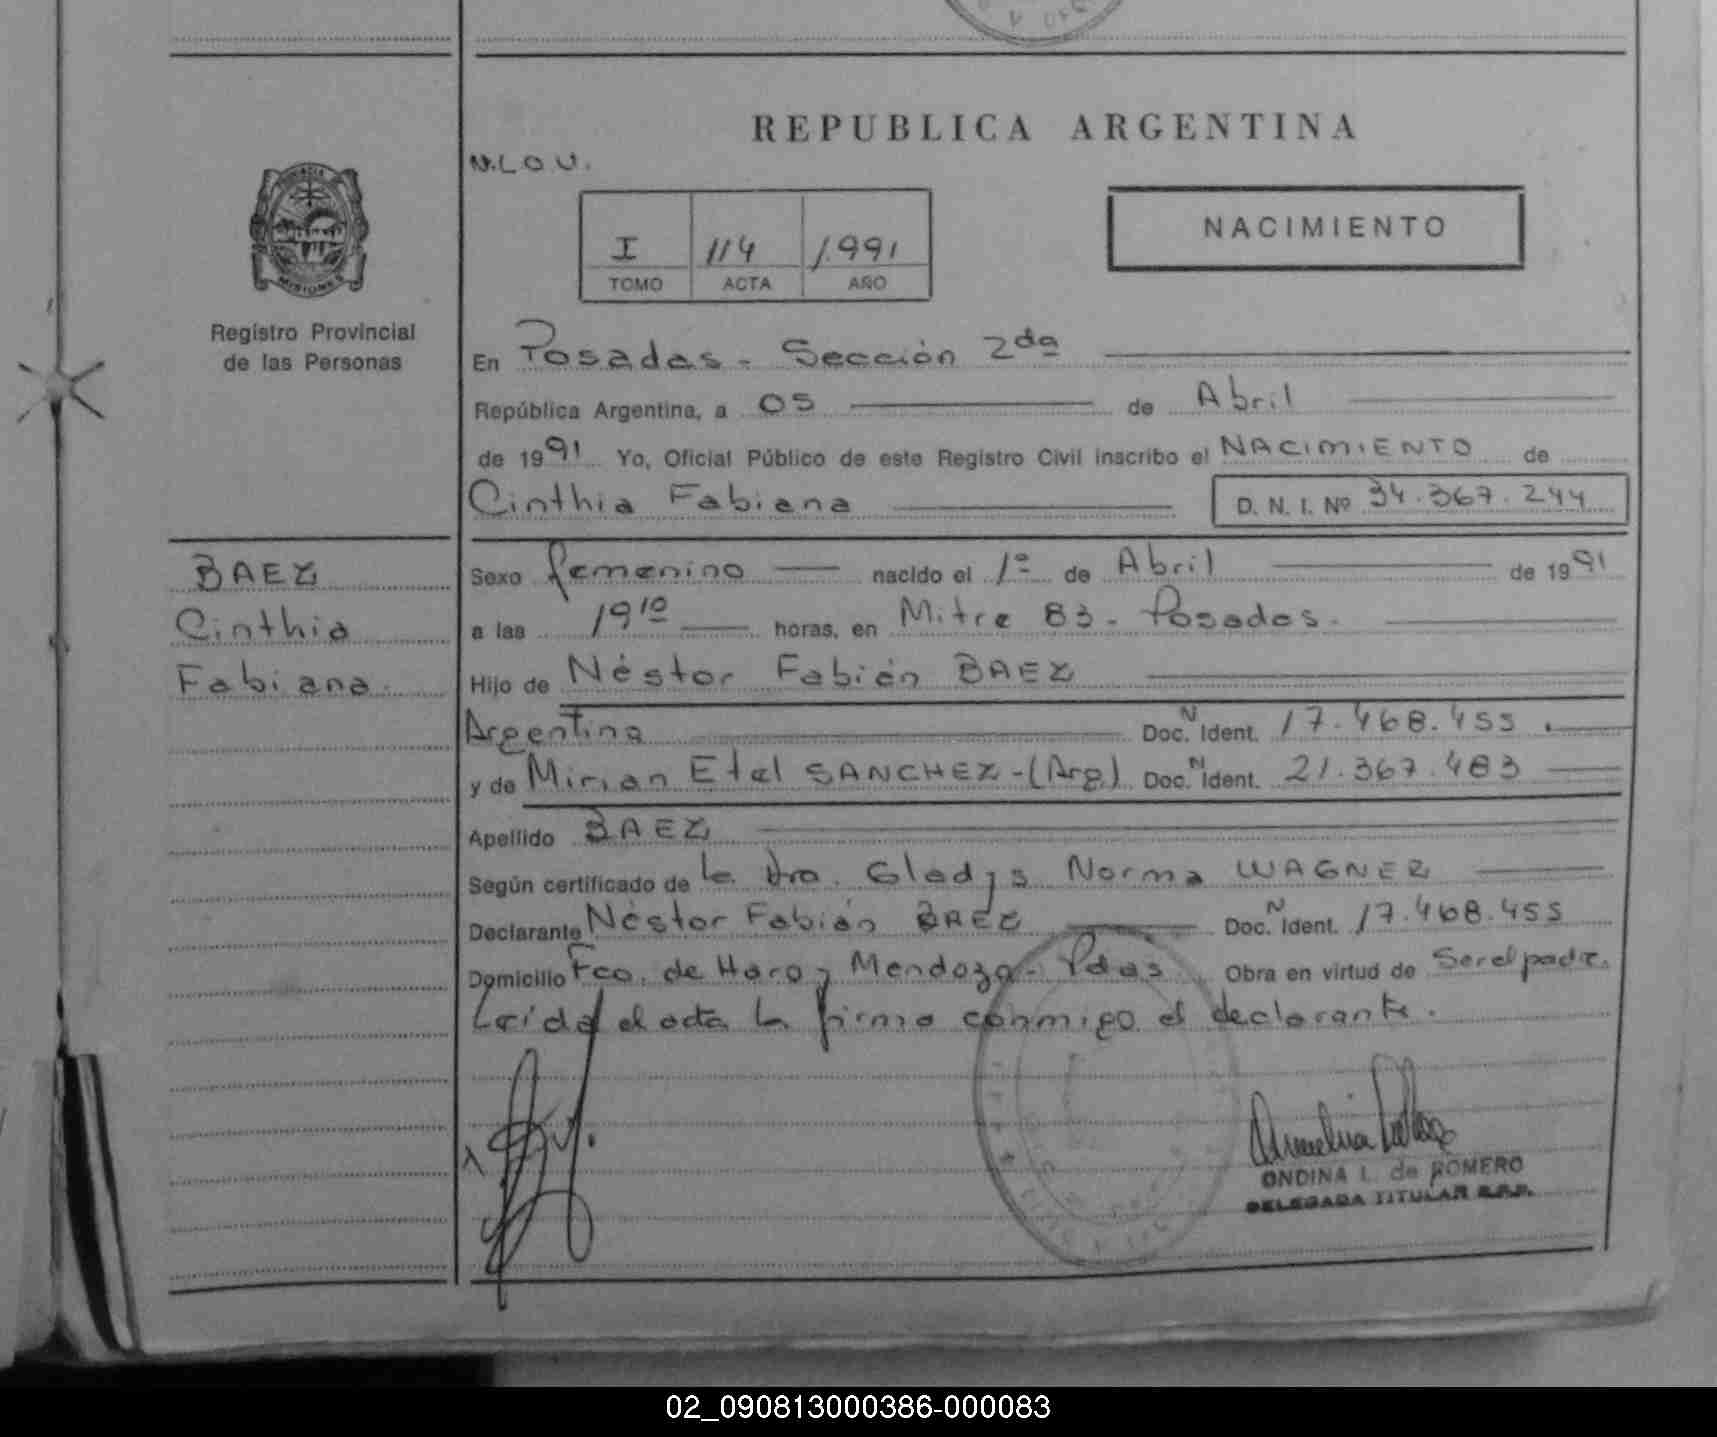 REPUBLICA ARGENTINA
N.L.O.U.
I 114 1.991
TOMO ACTA AÑO
NACIMIENTO
MISIONES
Registro Provincial
de las Personas
En Posadas - Sección 2da
República Argentina, a 05 de Abril
de 1991 Yo, Oficial Público de este Registro Civil inscribo el NACIMIENTO de
Cinthia Fabiana D. N. I. Nº 34.367.244
BAEZ
Cinthia
Fabiana.
Sexo femenino nacido el 1º de Abril de 1991
a las 19 10 horas, en Mitre 83 - Posadas.
Hijo de Néstor Fabián BAEZ
Argentina Doc. N Ident. 17.468.455.
y de Mirian Etel SANCHEZ - (Arg.) Doc. N Ident. 21.367.483
Apellido BAEZ
Según certificado de la Dra. Gladys Norma WAGNER
Declarante Néstor Fabián BAEZ Doc. N Ident. 17.468.455
Domicilio Fco. de Haro y Mendoza - Pdas. Obra en virtud de Ser el padre.
Leída el acta la firma conmigo el declarante.
ONDINA L. de ROMERO
DELEGADA TITULAR R.P.P.
02_090813000386-000083